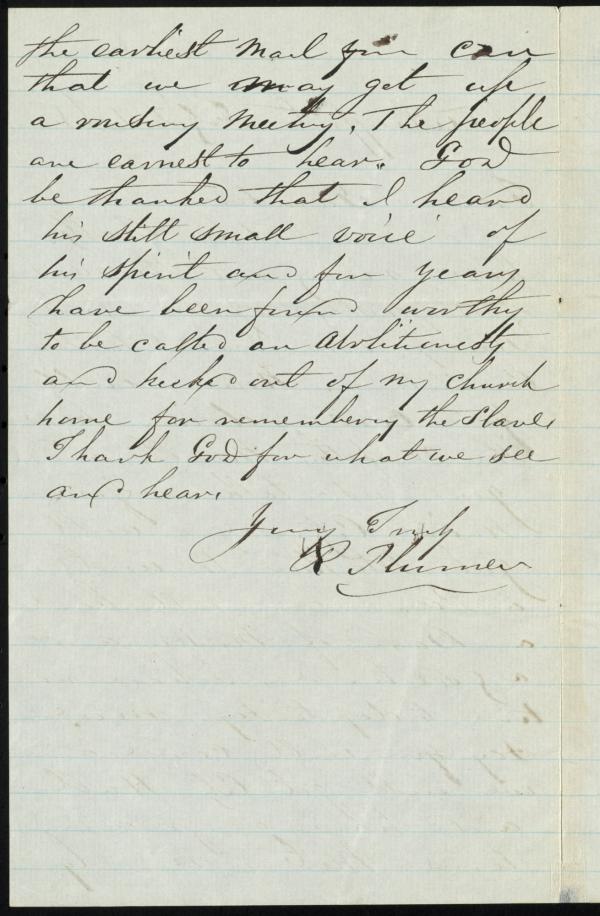 the earliest mail you can
that we may get up
a rousing meeting. The people
are earnest to hear. God
be thanked that I heard
his still small voice of
his spirit and for years
have been found worthy
to be called an Abolitionist
and kicked out of my church
home for remembering the slave
Thank God for what we see
and hear.
Yours Truly
R Plumer